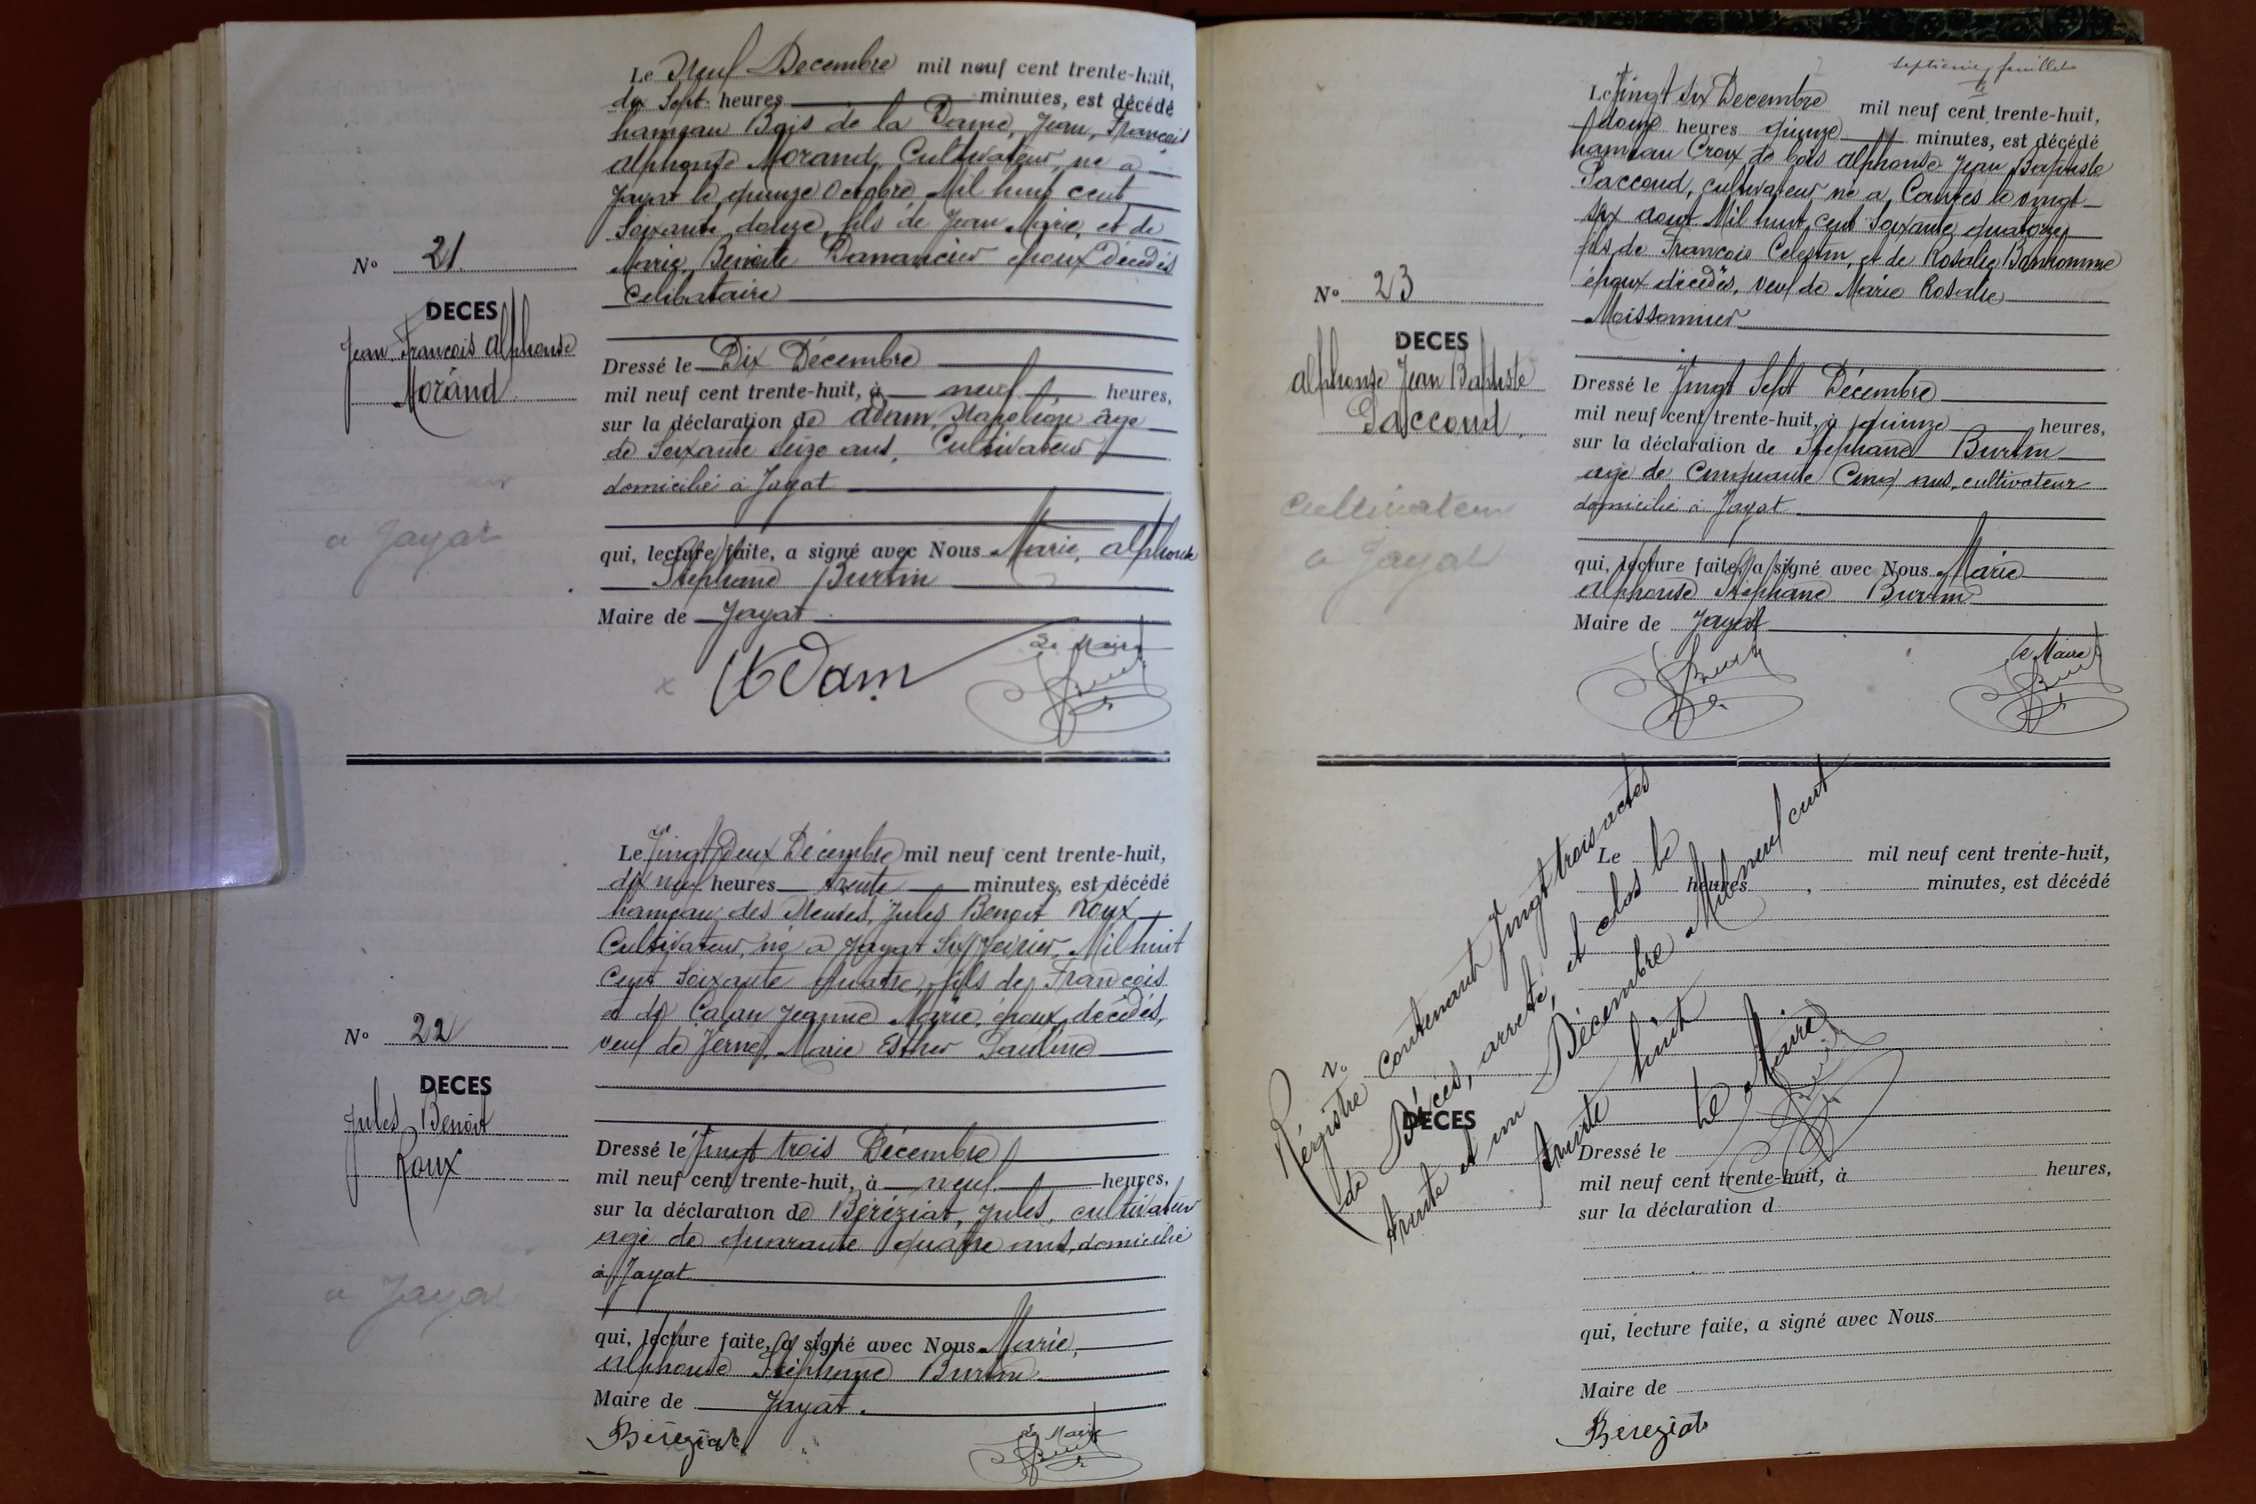 Le Neuf Decembre mil neuf cent trente-huit,
dix sept heures minutes, est décédé
hameau Bois de la Dame, Jean, François
alphonse Morand, Cultivateur, né a
Jayat le quinze Octobre Mil huit cent
Soixante douze, fils de Jean Marie, et de
Marie, Benoite Danancier époux décédés
Célibataire
N° 21
DECES
Jean François alphonse
Morand
a Jayat
Dressé le Dix Décembre
mil neuf cent trente-huit, à neuf heures,
sur la déclaration de adam, Napoléon âgé
de Soixante seize ans, Cultivateur
domicilié à Jayat
qui, lecture faite, a signé avec Nous Marie, alphonse
Stéphane Burtin
Maire de Jayat
Adam
Le Maire
Le Vingt deux Décembre mil neuf cent trente-huit,
dix neuf heures trente minutes, est décédé
hameau des Meules, Jules Benoit Roux
Cultivateur, né a Jayat Six Fevrier, Mil huit
Cent soixante quatre, fils de François
et de Calan Jeanne Marie, époux décédés,
veuf de Verne, Marie Esther Pauline
N° 22
DECES
Jules Benoit
Roux
a Jayat
Dressé le Vingt trois Décembre
mil neuf cent trente-huit, à neuf heures,
sur la déclaration de Béréziat, Jules, cultivateur
agé de quarante quatre ans, domicilié
à Jayat
qui, lecture faite, a signé avec Nous Marie,
alphonse Stéphane Burtin
Maire de Jayat.
Béréziat
Le Maire
septième feuillet
Le Vingt Six Decembre mil neuf cent trente-huit,
douze heures quinze minutes, est décédé
hameau Croix de bois alphonse Jean Baptiste
Paccoud, cultivateur, né a Courtes le vingt
six aout Mil huit cent Soixante quatorze
fils de François Celestin, et de Rosalie Bonhomme
époux décédés, veuf de Marie Rosalie
Moissonnier
N° 23
DECES
alphonse Jean Baptiste
Paccoud
cultivateur
a Jayat
Dressé le Vingt Sept Décembre
mil neuf cent trente-huit, à quinze heures,
sur la déclaration de Stéphane Burtin
agé de Cinquante Cinq ans, cultivateur
domicilié à Jayat
qui, lecture faite, a signé avec Nous Marie
alphonse Stéphane Burtin
Maire de Jayat
Le Maire
Régistre contenant vingt trois actes
de Décès, arreté, et clos le
trente et un Décembre Mil neuf cent
trente huit
Le Maire
Le mil neuf cent trente-huit,
heures minutes, est décédé
N°
DECES
Dressé le
mil neuf cent trente-huit, à heures,
sur la déclaration d
qui, lecture faite, a signé avec Nous
Maire de
Béréziat